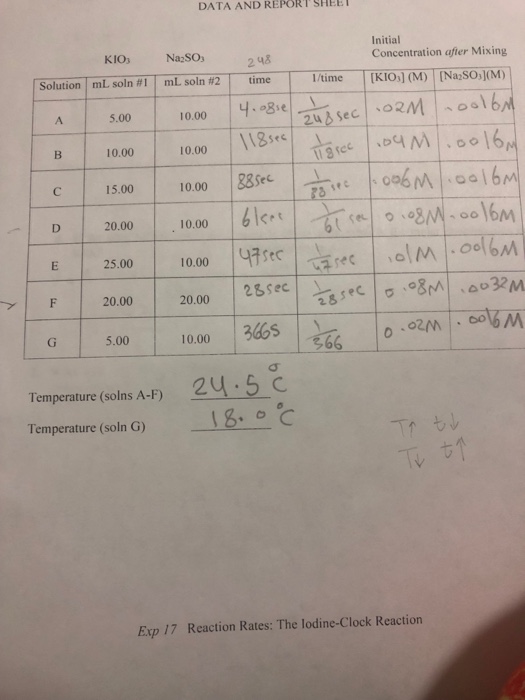 DATA AND REPORT SHEET
Initial
KIO₃ Na₂SO₃ 248 Concentration after Mixing
Solution mL soln #1 mL soln #2 time 1/time [KIO₃] (M) [Na₂SO₃](M)
A 5.00 10.00 4.08se 1/248 sec .02M .0016M
B 10.00 10.00 118sec 1/118 sec .04M .0016M
C 15.00 10.00 88sec 1/88 sec .006M .0016M
D 20.00 10.00 61sec 1/61 sec 0.08M .0016M
E 25.00 10.00 47sec 1/47 sec .01M .0016M
F 20.00 20.00 28sec 1/28 sec 0.08M .0032M
G 5.00 10.00 366s 1/366 0.02M .0016M
Temperature (solns A-F) 24.5°C
Temperature (soln G) 18.0°C
T↑ t↓
T↓ t↑
Exp 17 Reaction Rates: The Iodine-Clock Reaction